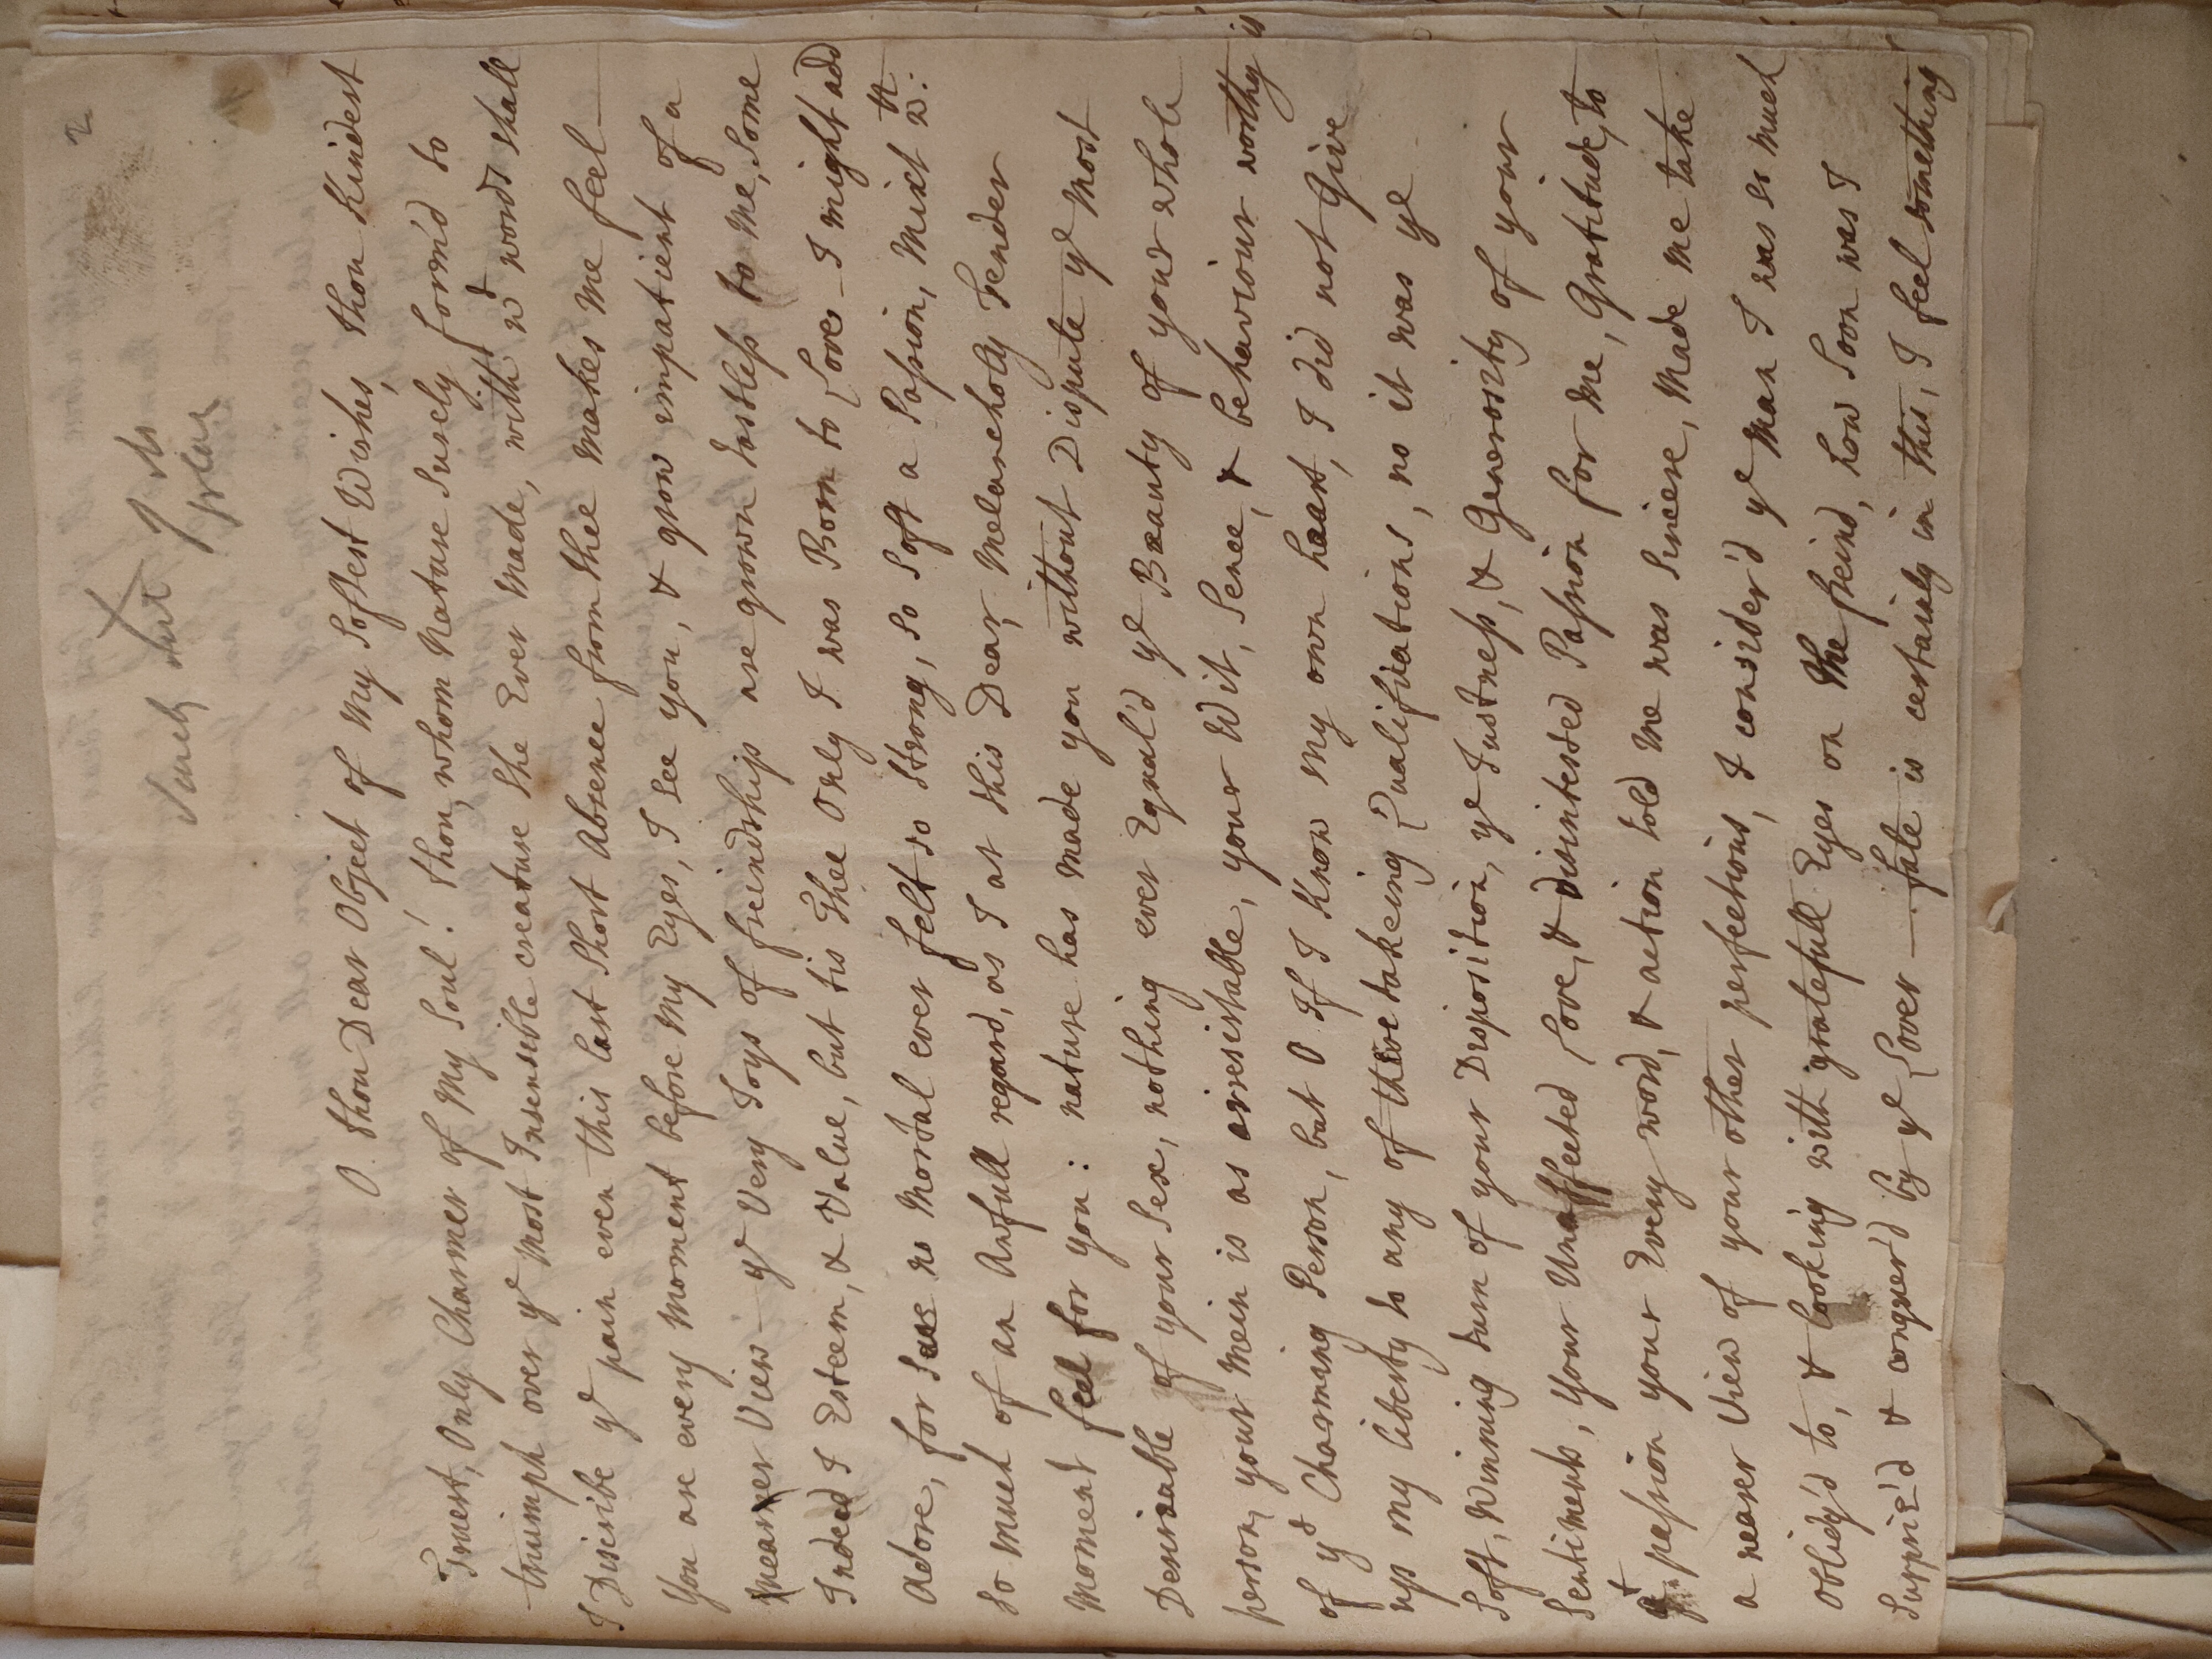 2
X
Surely out of its
place
O. thou Dear Object of my Softest Wishes, thou Kindest
Truest, Only Charmer of My Soul! thou, whom Nature Surely form'd to
triumph over yᵉ most Insensible creature She Ever made, with wᵗ words shall
I Discribe yᵉ pain even this last Short Absence from thee makes me feel —
You are every moment before my Eyes, I see you, & grow impatient of a
nearer View — yᵉ Very Joys of freindship are grown tastless to me, Some
Indeed I Esteem, & Value, but tis Thee Only I was Born to Love — I might add
Adore, for Sure no Mortal ever felt so Strong, so Soft a Passion, Mixt wᵗʰ:
so much of an Awfull regard, as I at this Dear, Melancholy Tender
moment feel for you: nature has made you without Dispute yᵉ most
Desirable of your Sex, nothing ever Equal'd yᵉ Beauty of your whole
person, your Mein is as irresistable, your Wit, Sence, & behaviour worthy is
of yᵗ Charming Person, but O If I Know my own heart, I did not Give
up my liberty to any of these takeing Qualifications, no it was ye
Soft, Winning turn of your Disposition, yᵉ Justness, & Generosity of your
Sentiments, your Unaffected Love, & disintested Passion for me, Gratitude, to
yᵗ passion your Every word, & action told me was Sincere, Made me take
a nearer View of your other perfections, I consider'd yᵉ man I was so much
Oblidg'd to, & looking with gratefull Eyes on the freind, how Soon was I
Surpris'd & conquer'd by yᵉ Lover — fate is certainly in this, I feel something